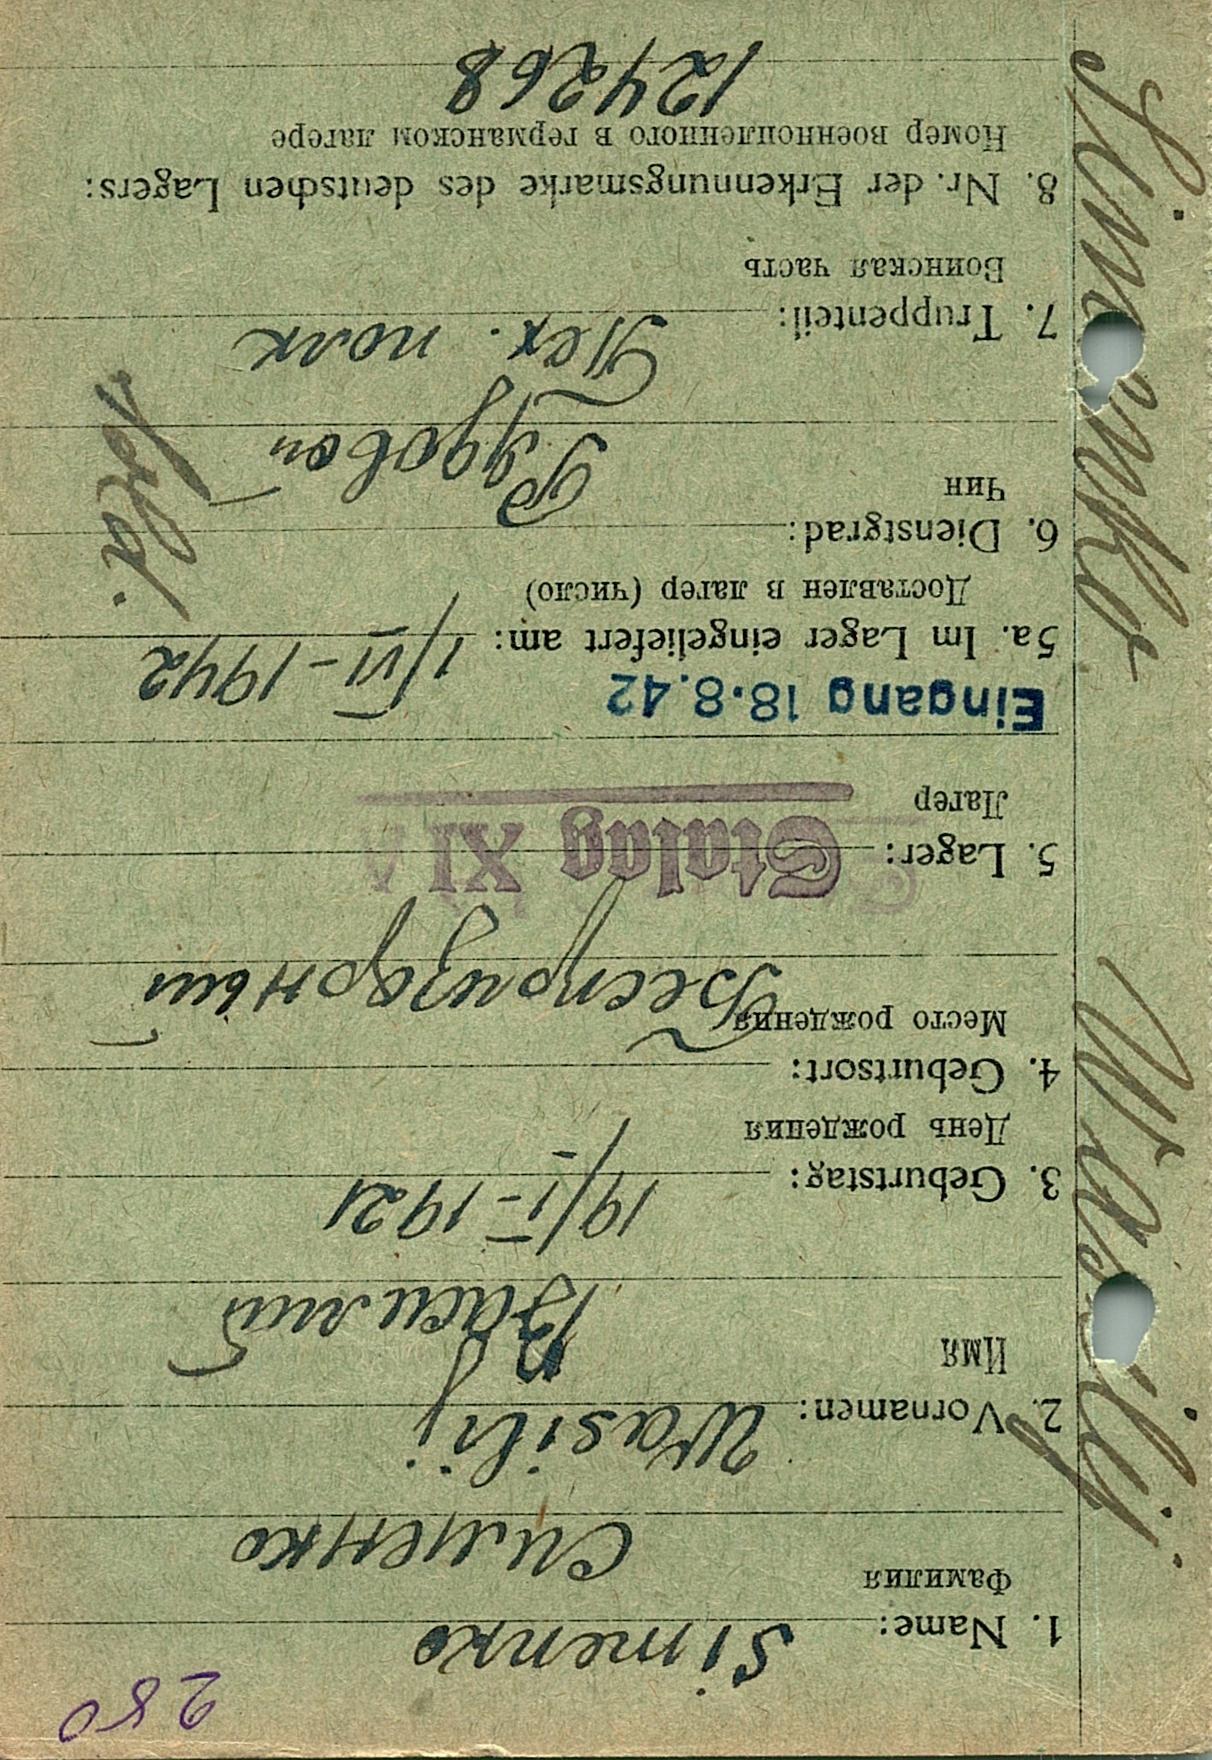 280
1. Name: Simenko
Фамилия
Сименко
2. Vornamen: Wasilij
Имя
Василий
3. Geburtstag: 19/I-1921
День рождения
4. Geburtsort:
Место рождения
Беспризорный
5. Lager: Stalag XI A
Лагер
Eingang 18.8.42
5a. Im Lager eingeliefert am: 1/VI-1942
Доставлен в лагер (число)
6. Dienstgrad: Рядовой
Чин
Sold.
7. Truppenteil: Пех. полк
Воинская часть
8. Nr. der Erkennungsmarke des deutschen Lagers:
Номер военнопленного в германском лагере
124268
Simenko Wasilij